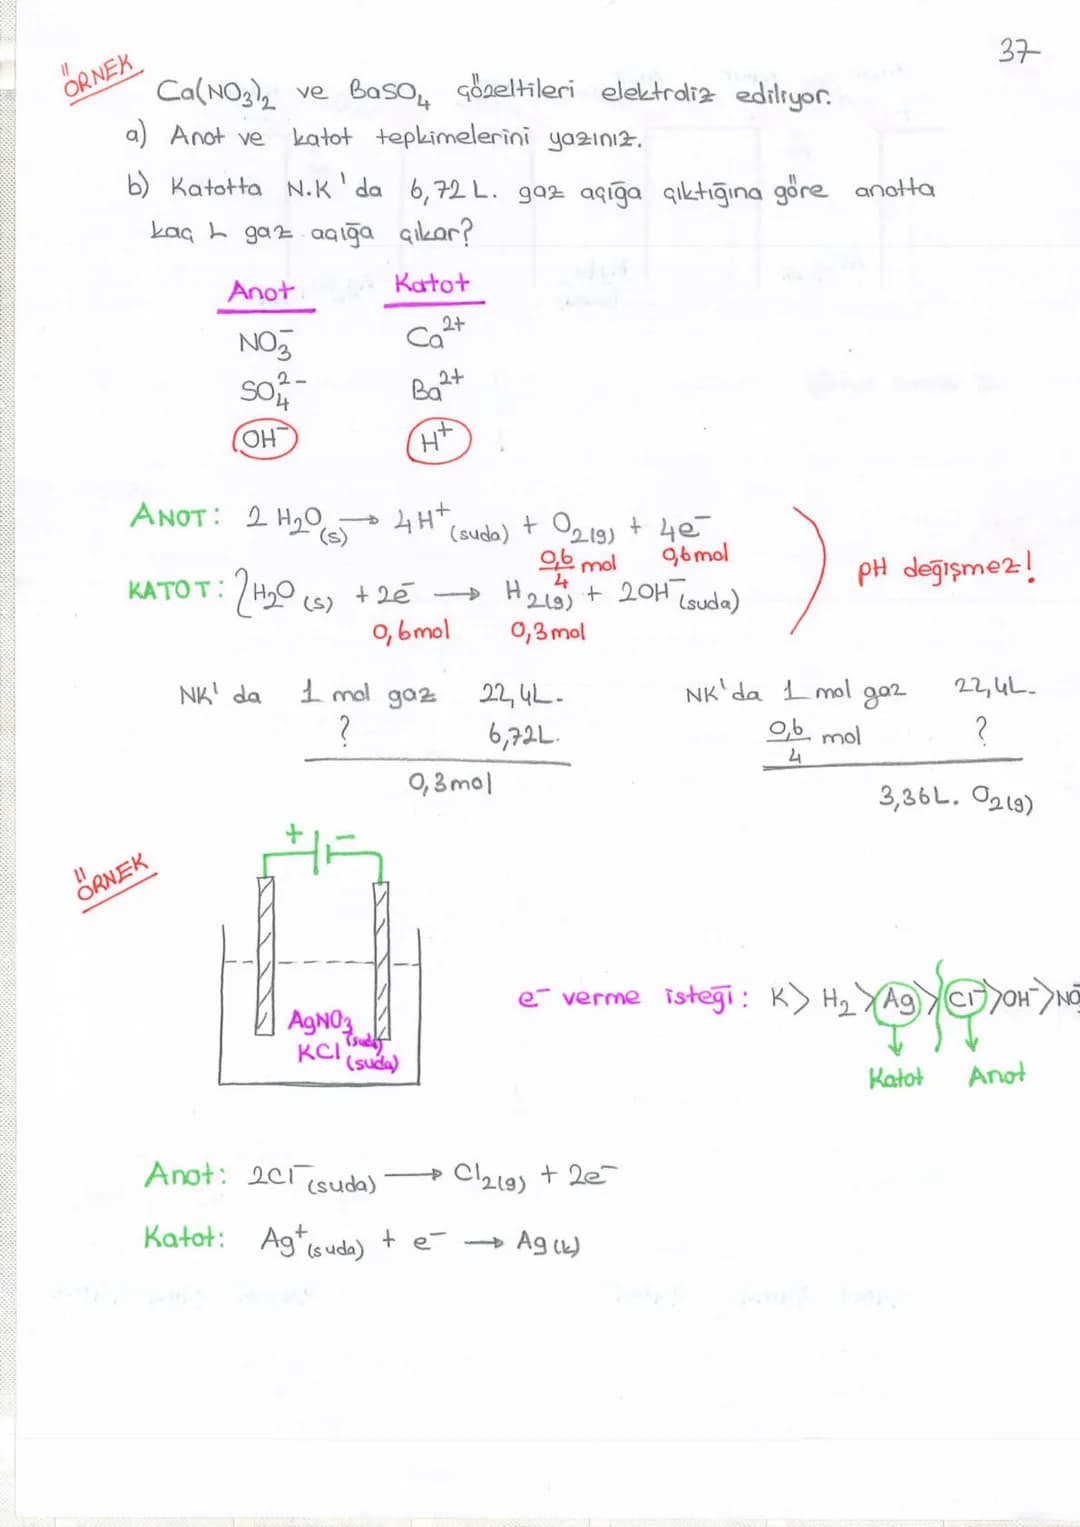 37
ÖRNEK
Ca(NO₃)₂ ve BaSO₄ çözeltileri elektroliz ediliyor.
a) Anot ve katot tepkimelerini yazınız.
b) Katotta N.K'da 6,72 L. gaz açığa çıktığına göre anotta
kaç L gaz açığa çıkar?
Anot Katot
NO₃⁻ Ca²⁺
SO₄²⁻ Ba²⁺
OH⁻ H⁺
ANOT: 2 H₂O(s) → 4H⁺(suda) + O₂(g) + 4e⁻
0,6/4 mol 0,6 mol
pH değişmez!
KATOT: 2H₂O(s) + 2e⁻ → H₂(g) + 2OH⁻(suda)
0,6 mol 0,3 mol
NK'da 1 mol gaz 22,4L.
? 6,72L.
0,3 mol
NK'da 1 mol gaz 22,4L.
0,6/4 mol ?
3,36L. O₂(g)
ÖRNEK
+ −
AgNO₃(suda)
KCl(suda)
e⁻ verme isteği: K > H₂ > Ag > Cl⁻ > OH⁻ > NO₃
Katot Anot
Anot: 2Cl⁻(suda) → Cl₂(g) + 2e⁻
Katot: Ag⁺(suda) + e⁻ → Ag(k)